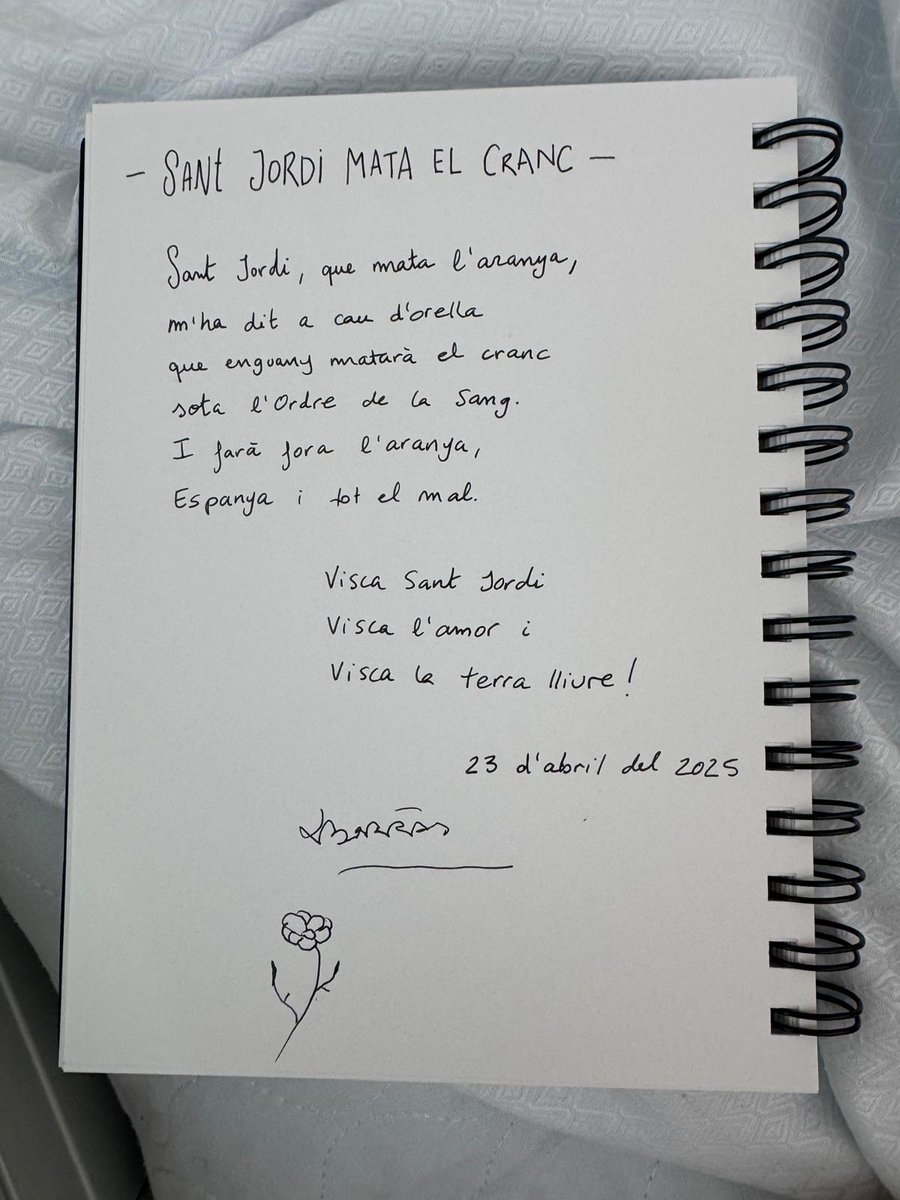 - SANT JORDI MATA EL CRANC -
Sant Jordi, que mata l'aranya,
m'ha dit a cau d'orella
que enguany matarà el cranc
sota l'Ordre de la Sang.
I farà fora l'aranya,
Espanya i tot el mal.
Visca Sant Jordi
Visca l'amor i
Visca la terra lliure!
23 d'abril del 2025